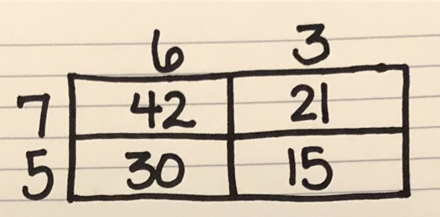 6 3
7 42 21
5 30 15